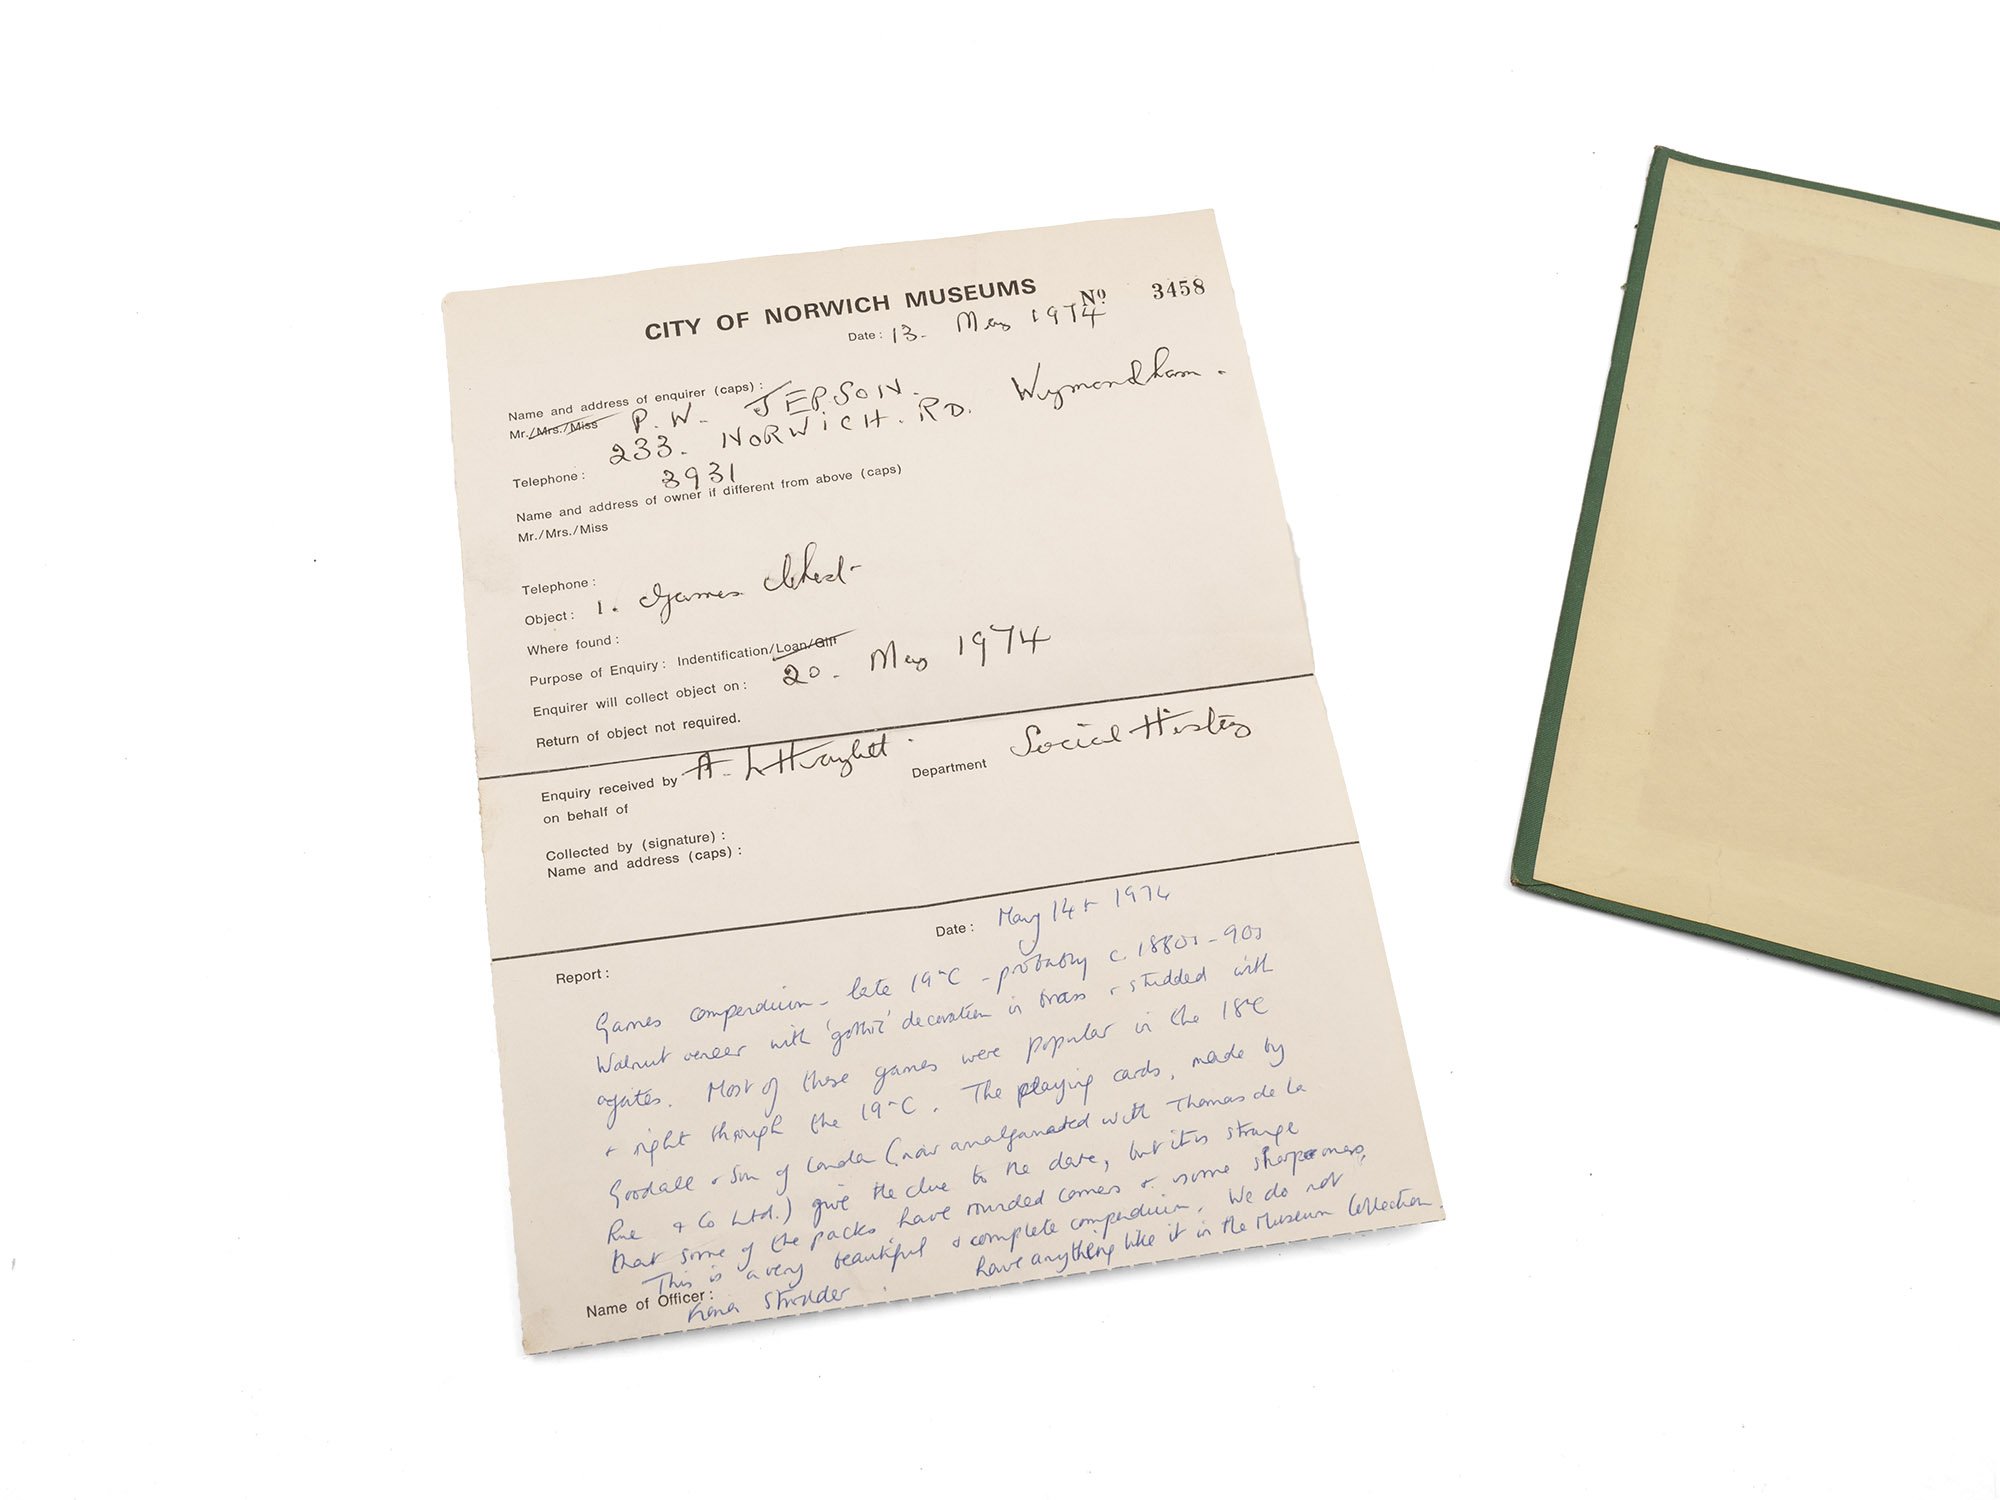 CITY OF NORWICH MUSEUMS
Nº 3458
Date: 13. May 1974
Name and address of enquirer (caps):
Mr./Mrs./Miss P. W. JEPSON.
233. NORWICH. RD. Wymondham.
Telephone: 3931
Name and address of owner if different from above (caps)
Mr./Mrs./Miss
Telephone:
Object: 1. Games Chest
Where found:
Purpose of Enquiry: Indentification/Loan/Gift
Enquirer will collect object on: 20. May 1974
Return of object not required.
Enquiry received by A. Department Social History
on behalf of
Collected by (signature):
Name and address (caps):
Date: May 14th 1974
Report:
Games compendium - late 19thC - probably c. 1880s - 90s
Walnut veneer with 'gothic' decoration in brass + studded with
agates. Most of these games were popular in the 18thC
+ right through the 19thC. The playing cards, made by
Goodall & Son of London (now amalgamated with Thomas de La
Rue & Co Ltd.) give the clue to the date, but it is strange
that some of the packs have rounded corners + some sharp corners,
This is a very beautiful & complete compendium. We do not
have anything like it in the Museum Collection.
Name of Officer: Strudder